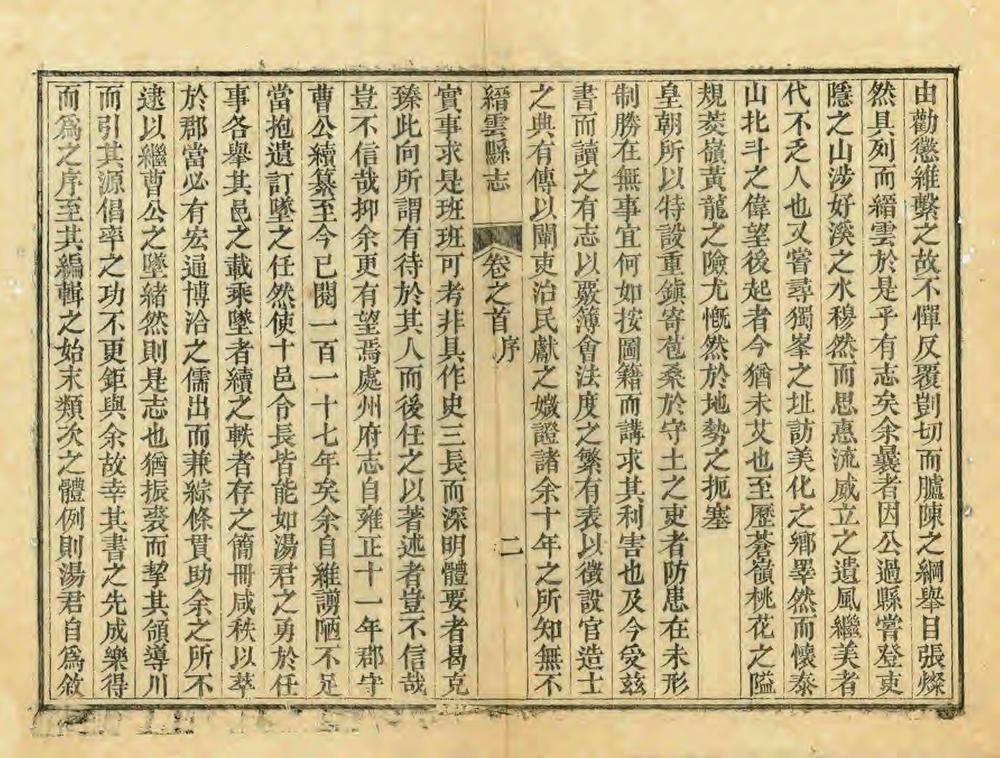 由勸懲維繫之故不憚反覆剴切而臚陳之綱舉目張燦
然具列而縉雲於是乎有志矣余曩者因公過縣嘗登吏
隱之山涉好溪之水穆然而思惠流威立之遺風繼美者
代不乏人也又嘗尋獨峯之址訪美化之鄉睪然而懷泰
山北斗之偉望後起者今猶未艾也至歷蒼嶺桃花之隘
規菱嶺黃龍之險尤慨然於地勢之扼塞
皇朝所以特設重鎮寄苞桑於守土之吏者防患在未形
制勝在無事宜何如按圖籍而講求其利害也及今受兹
書而讀之有志以覈簿會法度之繁有表以徵設官造士
之典有傳以闡吏治民獻之媺證諸余十年之所知無不
縉雲縣志
卷之首
序
二
實事求是班班可考非具作史三長而深明體要者曷克
臻此向所謂有待於其人而後任之以著述者豈不信哉
豈不信哉抑余更有望焉處州府志自雍正十一年郡守
曹公續纂至今已閱一百一十七年矣余自維謭陋不足
當抱遺訂墜之任然使十邑令長皆能如湯君之勇於任
事各舉其邑之載乘墜者續之軼者存之簡冊咸秩以萃
於郡當必有宏通博洽之儒出而兼綜條貫助余之所不
逮以繼曹公之墜緒然則是志也猶振裘而挈其領導川
而引其源倡率之功不更鉅與余故幸其書之先成樂得
而爲之序至其編輯之始末類次之體例則湯君自爲敘